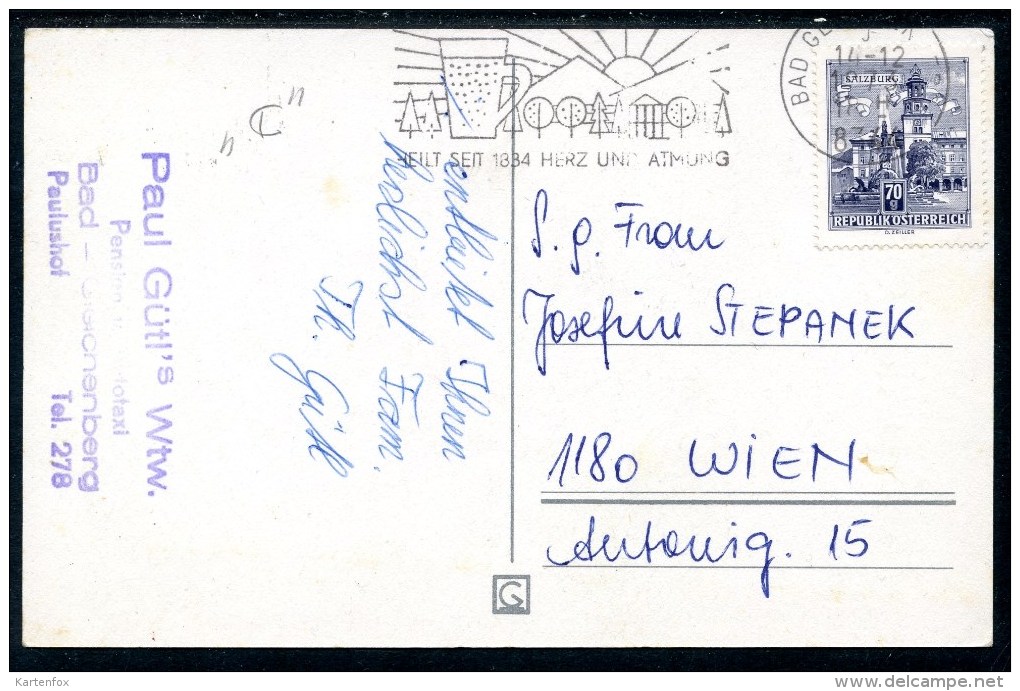 HEILT SEIT 1834 HERZ UND ATMUNG
BAD
14-12
8344
SALZBURG
70
g
REPUBLIK ÖSTERREICH
O. ZEILLER
Paul Gütl's Wtw.
Pension
Bad - Gleichenberg
Paulushof Tel. 278
entbietet Ihnen
herzlichst Fam.
Th. Gütl
S. g. Frau
Josefine STEPANEK
1180 WIEN
Antonig. 15
G
Kartenfox
delcampe.net